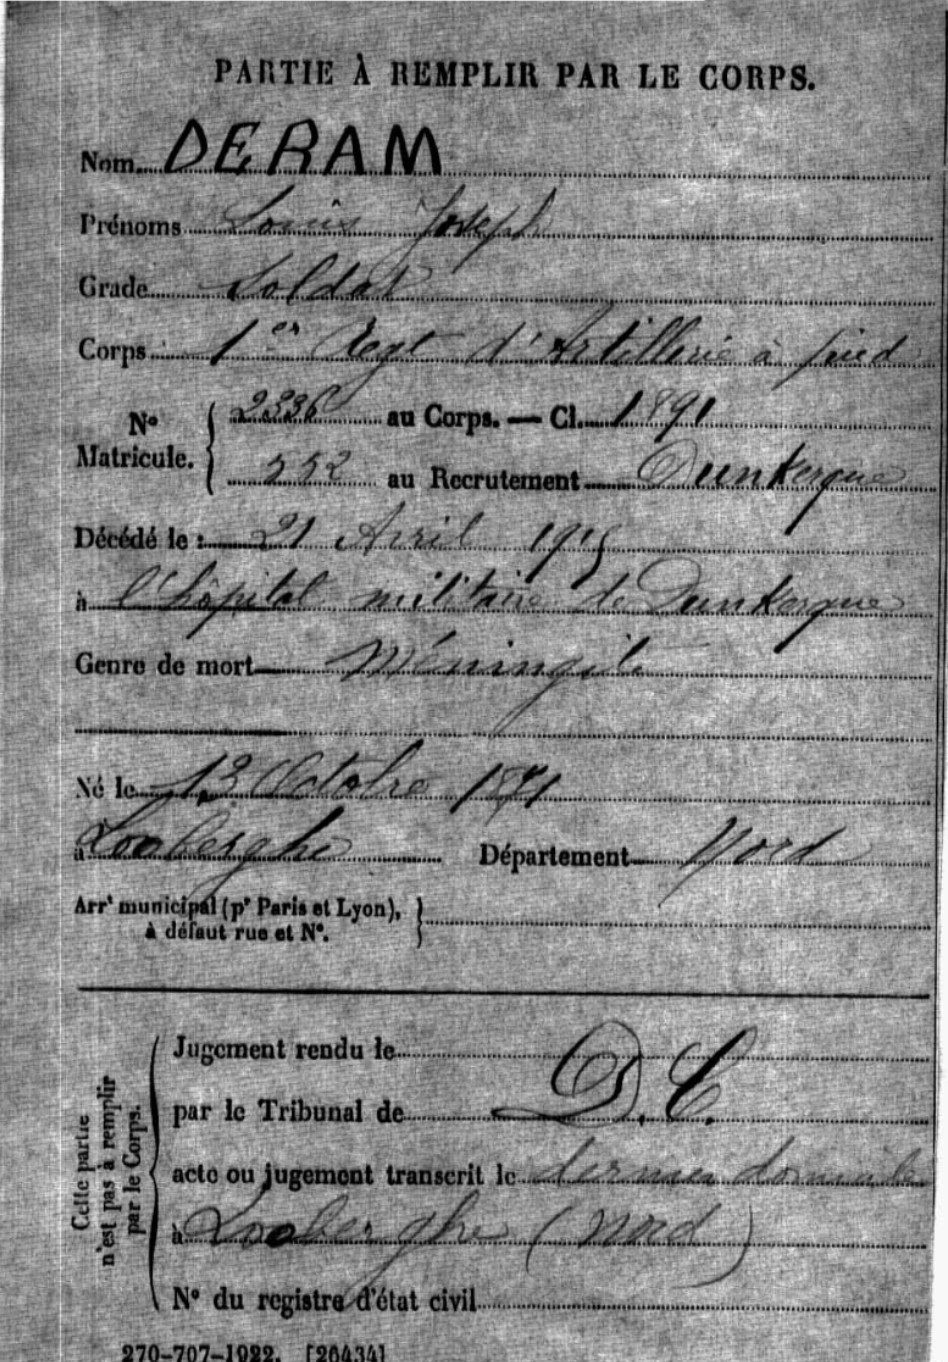 PARTIE À REMPLIR PAR LE CORPS.
Nom DERAM
Prénoms Louis Joseph
Grade Soldat
Corps 1er Regt d'Artillerie à pied
No Matricule. { 2336 au Corps. — Cl. 1891
552 au Recrutement Dunkerque
Décédé le : 21 Avril 1915
à l'hôpital militaire de Dunkerque
Genre de mort Méningite
Né le 13 Octobre 1871
à Looberghe Département Nord
Arrt municipal (pr Paris et Lyon),
à défaut rue et No.
Cette partie
n'est pas à remplir
par le Corps.
Jugement rendu le
par le Tribunal de D. C.
acte ou jugement transcrit le dernier domicile
à Looberghe (Nord)
No du registre d'état civil
270-707-1922. [26434]